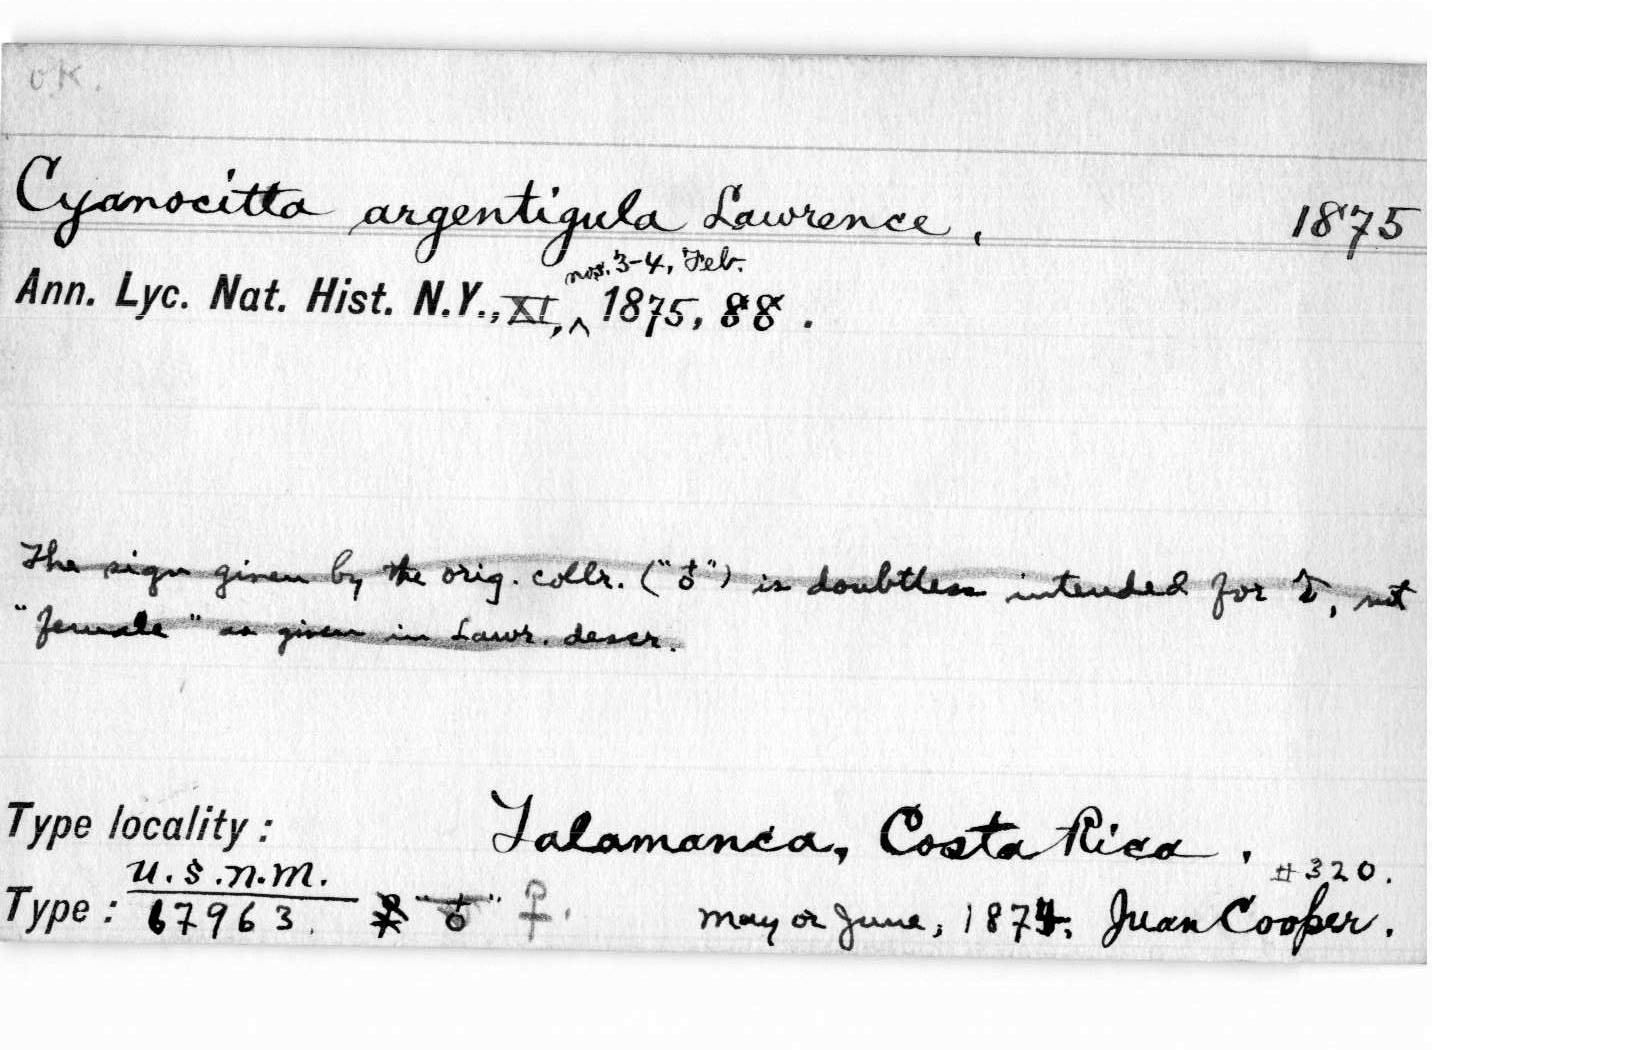 O.K.
Cyanocitta argentigula Lawrence, 1875
nos. 3-4, Feb.
Ann. Lyc. Nat. Hist. N.Y., XI, ^ 1875, 88.
The sign given by the orig. collr. ("♁") is doubtless intended for ♂, not
"female" as given in Lawr. descr.
Type locality: Talamanca, Costa Rica.
#320.
U.S.N.M.
Type: 67963. "♁" ♀. May or June, 1874, Juan Cooper.